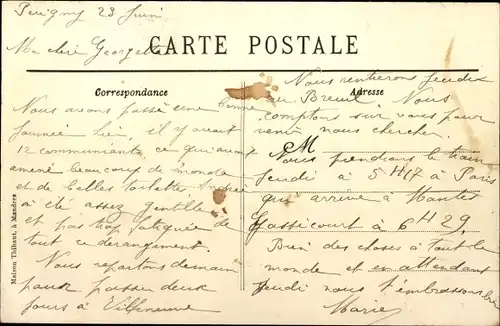 Périgny 23 Juin
Ma chère Georgette
CARTE POSTALE
Correspondance
Nous avons passé une bonne
journée hier, il y avait
12 communiants, ce qui avait
amené beaucoup de monde
et de belles toilettes, Andrée
a été assez gentille
et pas trop fatiguée de
tout ce dérangement.
Nous repartons demain
pour passer deux
jours à Villeneuve
Adresse
Nous rentrerons jeudi
au Breuil. Nous
comptons sur vous pour
venir nous chercher.
M
Nous prendrons le train
jeudi à 5H17 à Paris
qui arrive à Mantes
Gassicourt à 6H29.
Bien des choses à tout le
monde et en attendant
jeudi nous t'embrassons
Marie
Maison Thibaut, à Mandres